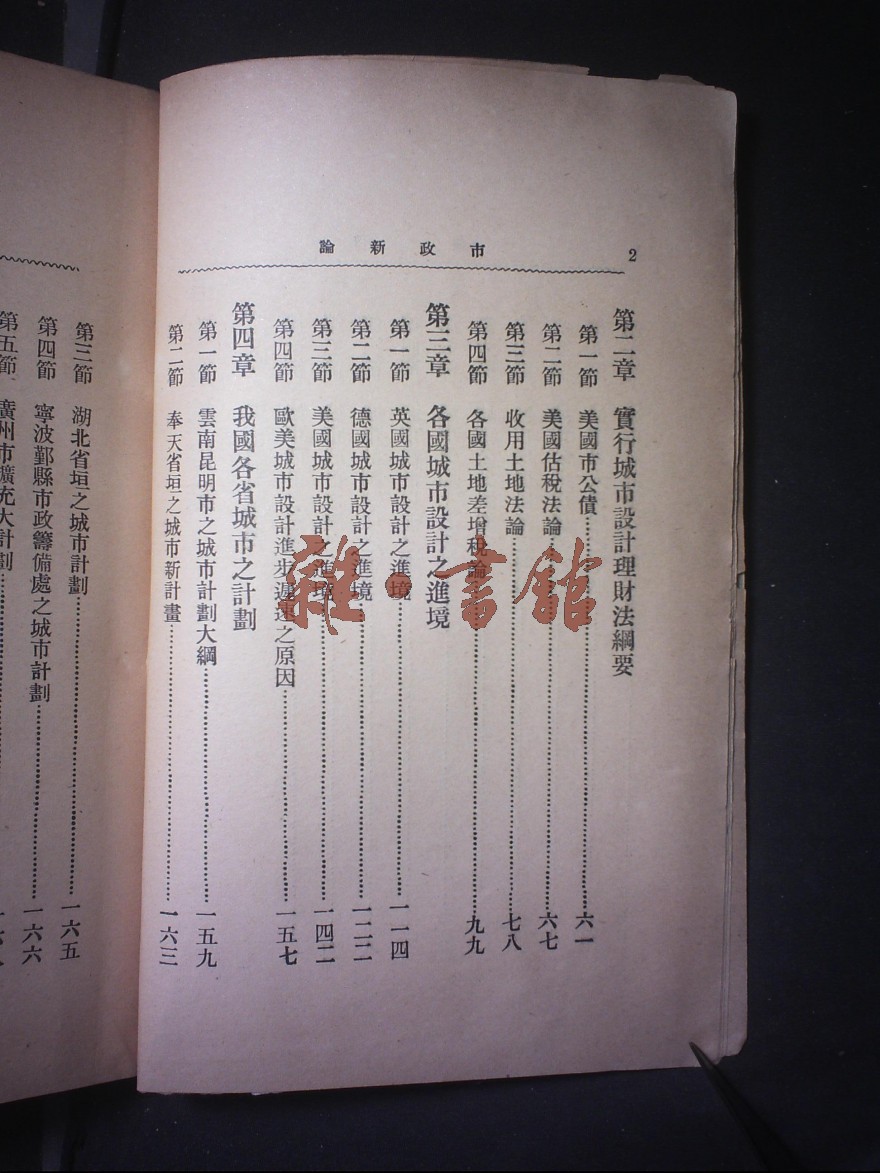 市政新論
2
第二章 實行城市設計理財法綱要
第一節 美國市公債……六一
第二節 美國估稅法論……六七
第三節 收用土地法論……七八
第四節 各國土地差增稅論……九九
第三章 各國城市設計之進境
第一節 英國城市設計之進境……一一四
第二節 德國城市設計之進境……一二二
第三節 美國城市設計之進境……一四二
第四節 歐美城市設計進步遲速之原因……一五七
第四章 我國各省城市之計劃
第一節 雲南昆明市之城市計劃大綱……一五九
第二節 奉天省垣之城市新計畫……一六三
第三節 湖北省垣之城市計劃……一六五
第四節 寧波鄞縣市政籌備處之城市計劃……一六六
第五節 廣州市擴充大計劃……一六
雜·書館